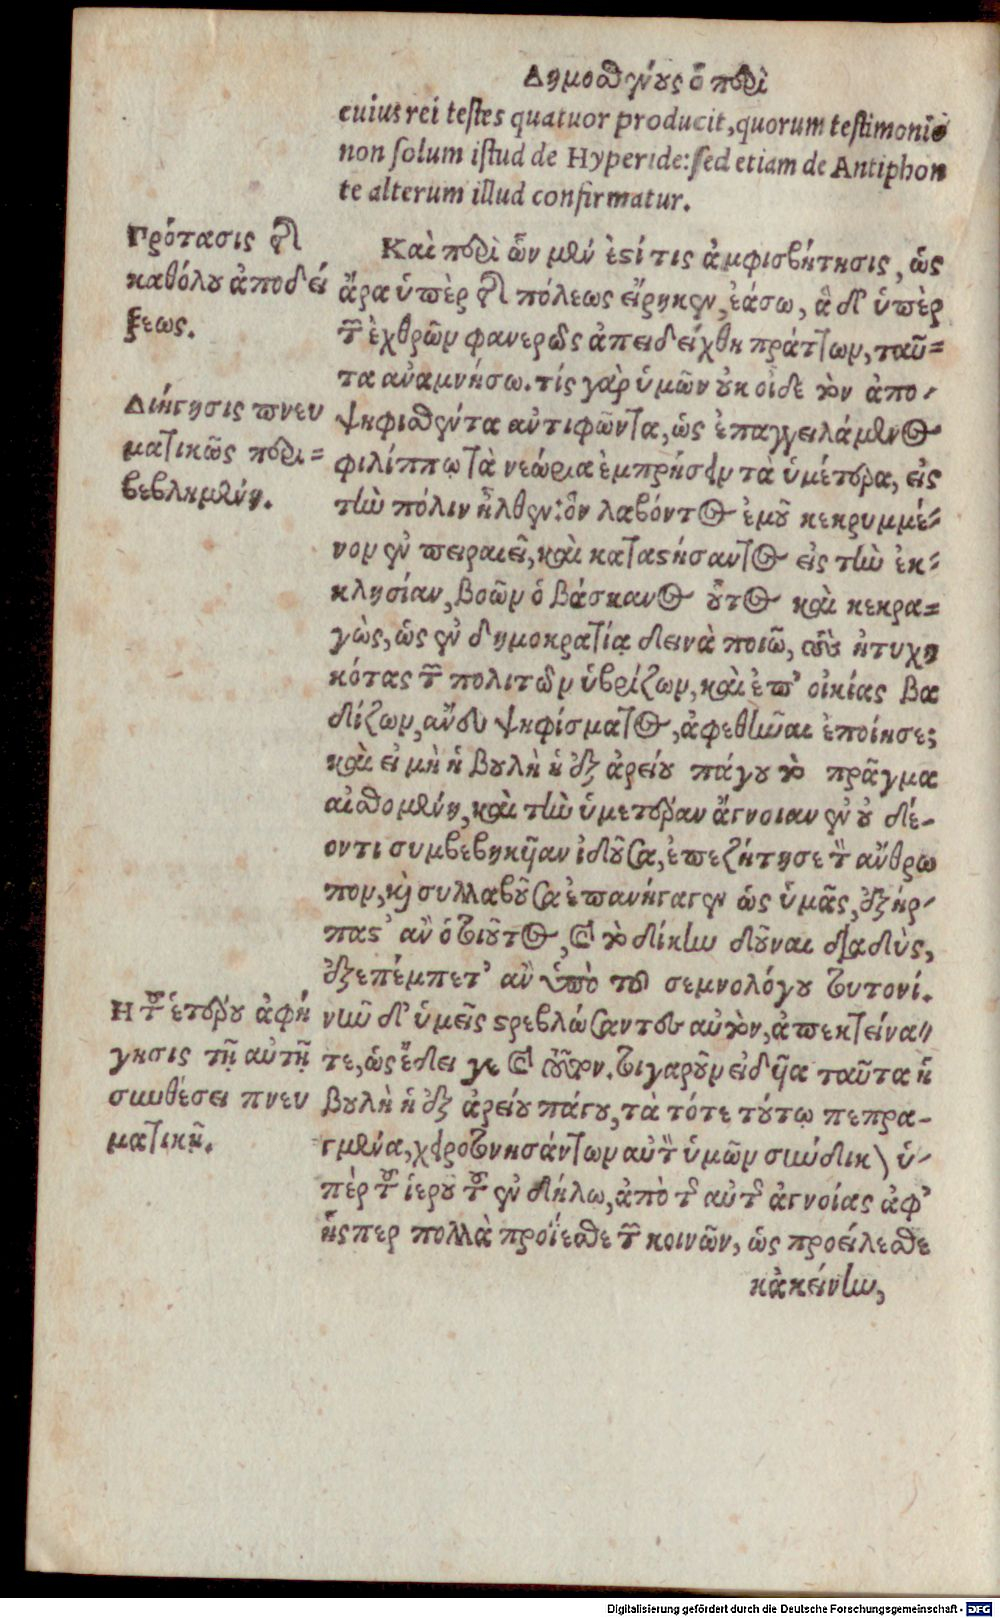 Δημοσθένους ὁ περὶ
cuius rei testes quatuor producit, quorum testimonio
non solum istud de Hyperide: sed etiam de Antiphon
te alterum illud confirmatur.
Πρότασις τῆς
καθόλου ἀποδεί
ξεως.
Καὶ περὶ ὧν μέν ἐστί τις ἀμφισβήτησις, ὡς
ἄρα ὑπὲρ τῆς πόλεως εἴρηκεν, ἐάσω, ἃ δ' ὑπὲρ
τῶν ἐχθρῶν φανερῶς ἀπεδείχθη πράττων, ταῦ=
τα ἀναμνήσω. τίς γὰρ ὑμῶν οὐκ οἶδε τὸν ἀπο-
Διήγησις πνευ
ματικῶς περι=
βεβλημένη.
ψηφισθέντα ἀντιφῶντα, ὡς ἐπαγγειλάμενος
φιλίππῳ τὰ νεώρια ἐμπρήσειν τὰ ὑμέτερα, εἰς
τὴν πόλιν ἦλθεν: ὃν λαβόντος ἐμοῦ κεκρυμμέ-
νον ἐν πειραιεῖ, καὶ καταστήσαντος εἰς τὴν ἐκ-
κλησίαν, βοῶν ὁ βάσκανος οὗτος καὶ κεκρα=
γὼς, ὡς ἐν δημοκρατίᾳ δεινὰ ποιῶ, τοὺς ἠτυχη
κότας τῶν πολιτῶν ὑβρίζων, καὶ ἐπ' οἰκίας βα
δίζων, ἄνευ ψηφίσματος, ἀφεθῆναι ἐποίησε;
καὶ εἰ μὴ ἡ βουλὴ ἡ ἐξ ἀρείου πάγου τὸ πρᾶγμα
αἰσθομένη, καὶ τὴν ὑμετέραν ἄγνοιαν ἐν οὐ δέ-
οντι συμβεβηκῆαν ἰδοῦσα, ἐπεζήτησε τὸν ἄνθρω
πον, καὶ συλλαβοῦσα ἐπανήγαγεν ὡς ὑμᾶς, ἐξήρ-
παστ' ἂν ὁ τοιοῦτος, καὶ τὸ δίκην δοῦναι διαδὺς,
ἐξεπέμπετ' ἂν ὑπὸ τοῦ σεμνολόγου τουτονί.
Η τοῦ ἑτέρου ἀφή
γησις τῇ αὐτῇ
συνθέσει πνευ
ματικῇ.
νῦν δ' ὑμεῖς στρεβλώσαντες αὐτὸν, ἀπεκτείνα-
τε, ὡς ἔδει γε καὶ τοῦτον. τοιγαροῦν εἰδῆα ταῦτα ἡ
βουλὴ ἡ ἐξ ἀρείου πάγου, τὰ τότε τούτῳ πεπρα-
γμένα, χειροτονησάντων αὐτὸν ὑμῶν σύνδικον ὑ-
πὲρ τοῦ ἱεροῦ τοῦ ἐν δήλω, ἀπὸ τῆς αὐτῆς ἀγνοίας ἀφ'
ἧσπερ πολλὰ προΐεσθε τῶν κοινῶν, ὡς προείλεσθε
κἀκείνην,
Digitalisierung gefördert durch die Deutsche Forschungsgemeinschaft - DFG